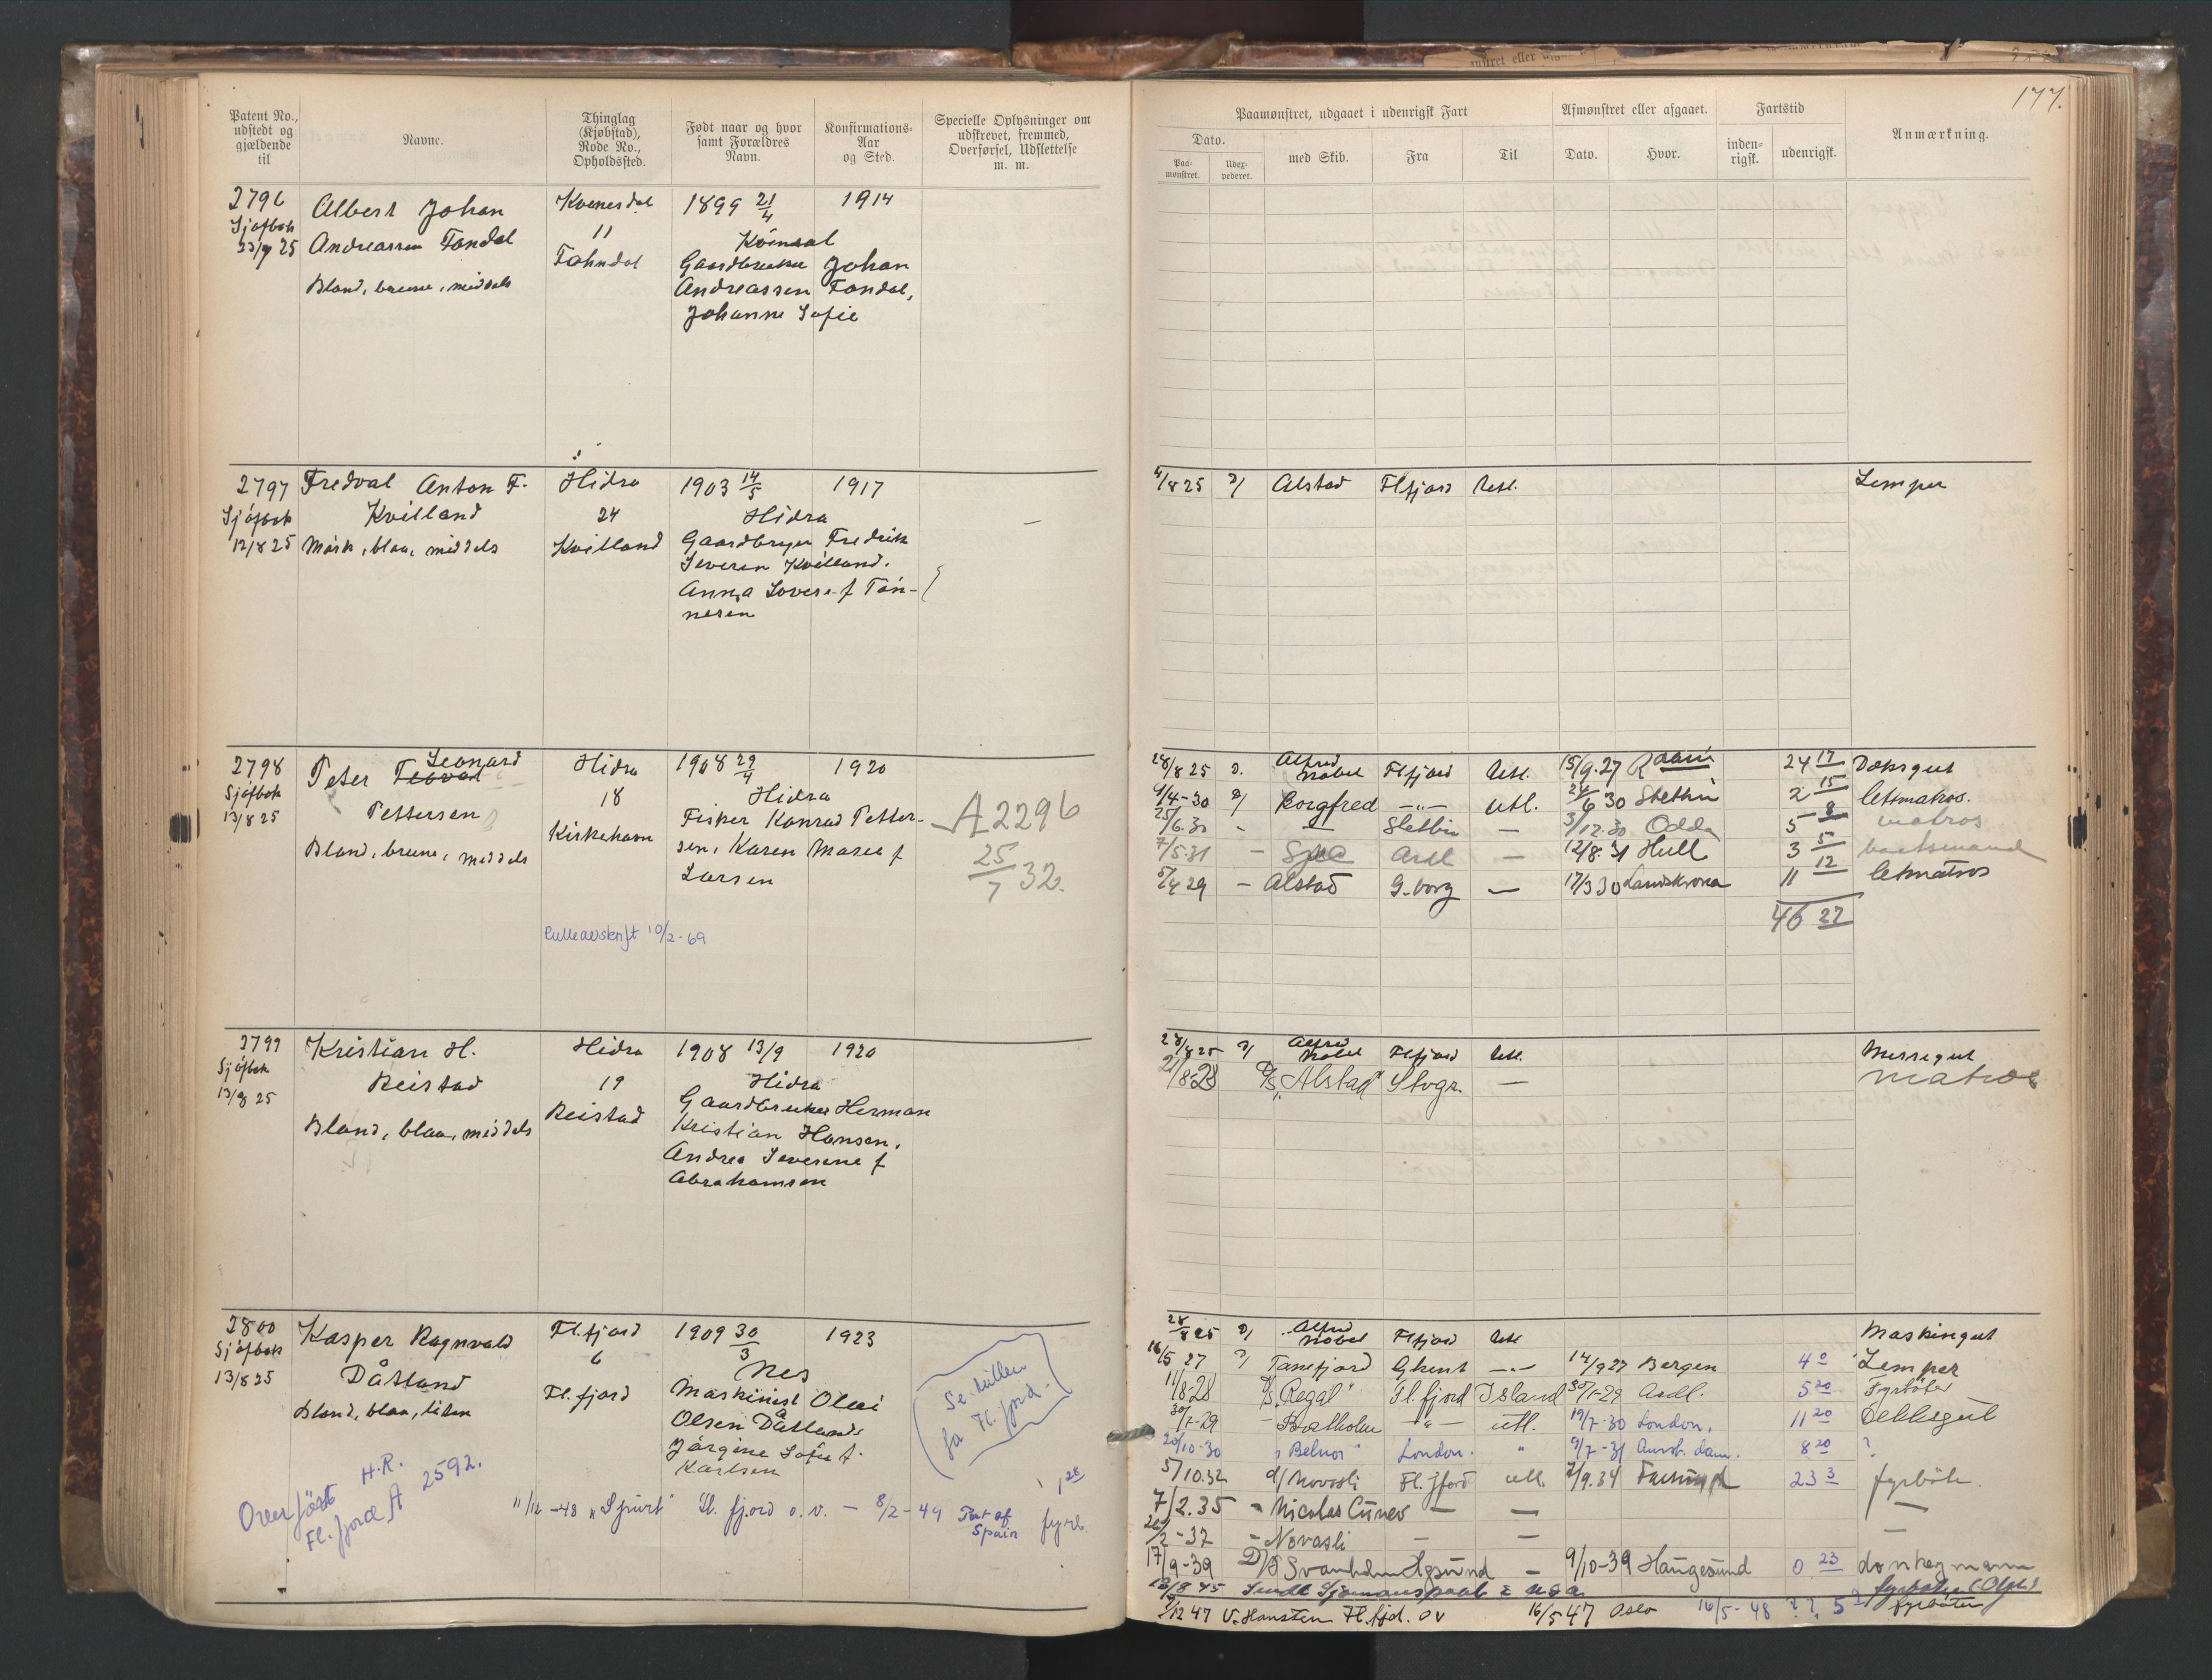 177.
Patent No., udstedt og gjældende til
Navne.
Thinglag (Kjøbstad), Rode No., Opholdssted.
Født naar og hvor samt Forældres Navn.
Konfirmations-Aar og Sted.
Specielle Oplysninger om udskrevet, fremmed, Overførsel, Udslettelse m. m.
Paamønstret, udgaaet i udenrigsk Fart
Dato.
Paa-mønstret.
Udex-pederet.
med Skib.
Fra
Til
Afmønstret eller afgaaet.
Dato.
Hvor.
Fartstid
inden-rigsk.
udenrigsk.
Anmærkning.
2796 Albert Johan Kvinesdal 1899 21/4 1914
Sjøfbok
Andreassen Fandal 11 Kvinesdal
Gaardbruker Johan
Blond, brune, middels
Andreassen Fandal,
Johanne Sofie
2797 Fredval Anton F. Hidra 1903 14/5 1917
Sjøfbok Kvilland 24 Hidra
12/8 25 Mørk, blaa, middels Kvilland Gaardbruger Fredrik
Severin Kvilland.
Anna Lovise f Tøn-
nesen
4/8 25 D/ Alstad Flfjord Utl. Lemper
2798 Peter Leonard Hidra 1908 29/4 1920
Sjøfbok Pettersen 18 Hidra
13/8 25 Blond, brune, middels Kirkehavn Fisker Konrad Petter-
sen, Karen Marie f
Larsen
A 2296
25/7 32.
Rulleavskrift 10/2-69
28/8 25 D. Alfred Nobel Flfjord Utl. 15/9.27 24 17 Dæksgut
9/4-30 D/ Borgfred -"- Utl. 24/6 30 Stettin 2 15 letmatros.
25/6.30 - — Stettin — 3/12.30 Odda 5 8 matros
7/5.31 - Ardl — 12/8.31 Hull 3 5 baatsmand
5/4 29 - Alstad G.borg — 17/3 30 Landskrona 11 12 letmatros
46 27
2799 Kristian H. Hidra 1908 13/9 1920
Sjøfbok Reistad 19 Hidra
13/8 25 Blond, blaa, middels Reistad Gaardbruker Herman
Kristian Hansen,
Andrea Severine f
Abrahamsen
28/8 25 D/ Alfred Nobel Flfjord Utl. Messegut
21/8-28 D/S "Alstad" Stvgr. — matros
2800 Kasper Ragnvald Fl.fjord 1909 30/3 1923
Sjøfbok Dåtland 6 Nes
13/8 25 Blond, blaa, liten Fl.fjord Maskinist Olai
Olsen Dåtland,
Jørgine Sofie f.
Karlsen
Se rullen
for Fl.fjord.
Overført H.R.
Fl.fjord A 2592.
11/12-48 "Spurt" Fl.fjord o.v. — 8/2-49 Port of Spain 1 28 fyrb.
28/8 25 D/ Alfred Nobel Flfjord Utl Maskingut
16/5 27 D/ Tanafjord Ghent -"- 14/9 27 Bergen 4 0 Lemper
11/8-28 D/S "Regal" Fl.fjord Island 30/1-29 Ardl. 5 20 Fyrbøter
30/7-29 - Bratholm -"- utl. 19/7-30 London. 11 20 Dekksgut
20/10-30 "Belnor" London. " 9/7-31 Amst.dam. 8 20 ?
5/10.32 d/ Novasli Fl.fjord utl. 2/9.34 Farsund 23 3 fyrbøt.
7/2.35 - Nicolas Cuneo — — —
26/2-37 - Novasli — — —
17/9-39 D/S Svanholm Hgsund — 9/10-39 Haugesund 0 23 donkeymann
18/8 45 Sendt Sjømannspatent i USA fyrbøter (Olje)
/12 47 V. Hansteen Fl.fjd. ov 16/5 47 Oslo 16/5-48 ? ? 5 fyrbøter